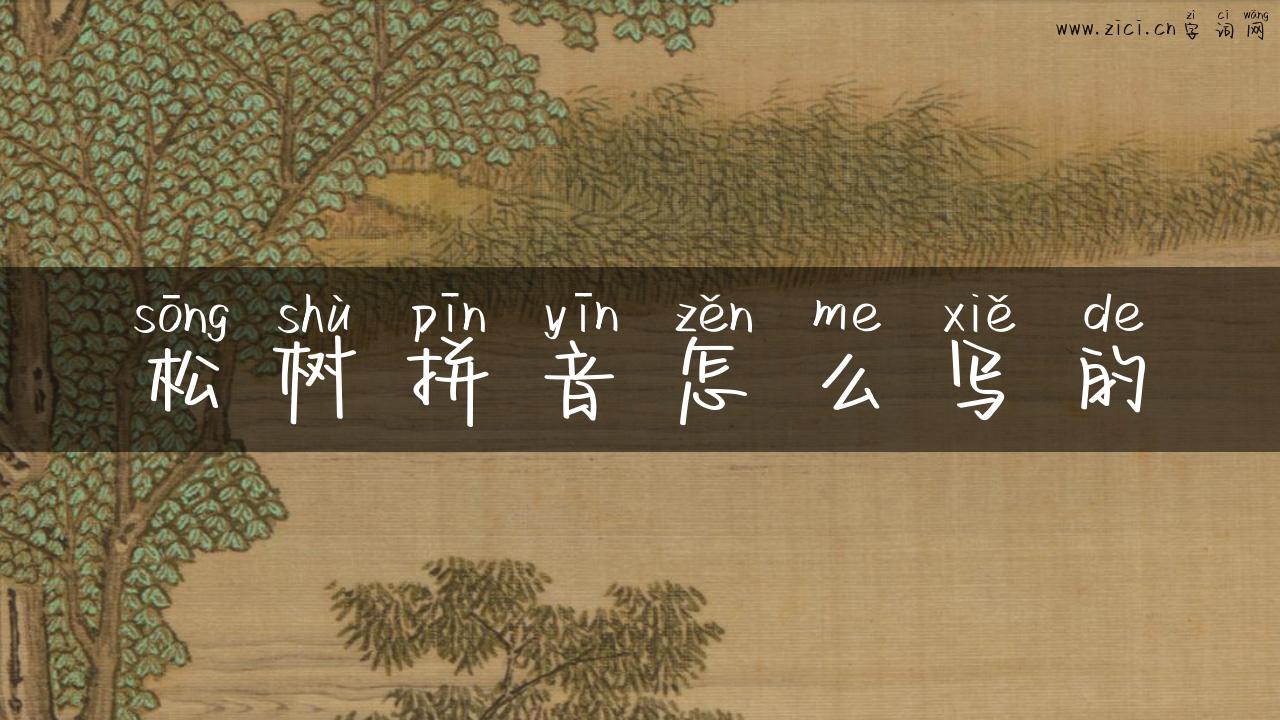 zì cí wǎng
www.zici.cn字词网
sōng shù pīn yīn zěn me xiě de
松树拼音怎么写的